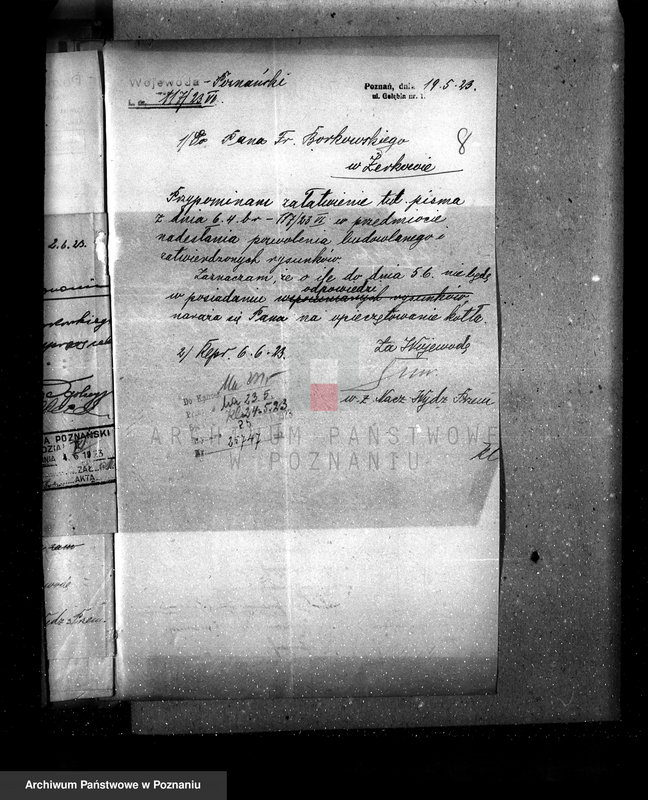 Wojewoda Poznański
L. dz. 117/23 VI.
Poznań, dnia 19.5.23.
ul. Gołębia nr. 1.
8
1/ Do Pana Fr. Borkowskiego
w Żerkowie
Przypominam załatwienie tut. pisma
z dnia 6.4. br – 117/23 VI w przedmiocie
nadesłania pozwolenia budowlanego i
zatwierdzonych rysunków.
Zaznaczam, że o ile do dnia 5.6. nie będę
w posiadaniu wspomnianych rysunków, odpowiedzi
naraża się Pana na opieczętowanie kotła.
2/ Kpr. 6.6.23.
Za Wojewodę
w. z. Nacz. Wydz. Przem.
23.5.
24.5.23
25
25747
2.6.23.
A POZNAŃSKI
4. 6. 1923
ZAŁ.
AKTA
Wydz. Przem.
ARCHIWUM PAŃSTWOWE
W POZNANIU
Archiwum Państwowe w Poznaniu